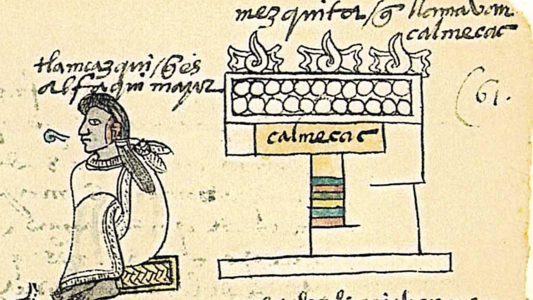 mezquita / q̃ llamavan
calmecac
tlamazqui / q̃ es
alfaqui mayor
61.
calmecac